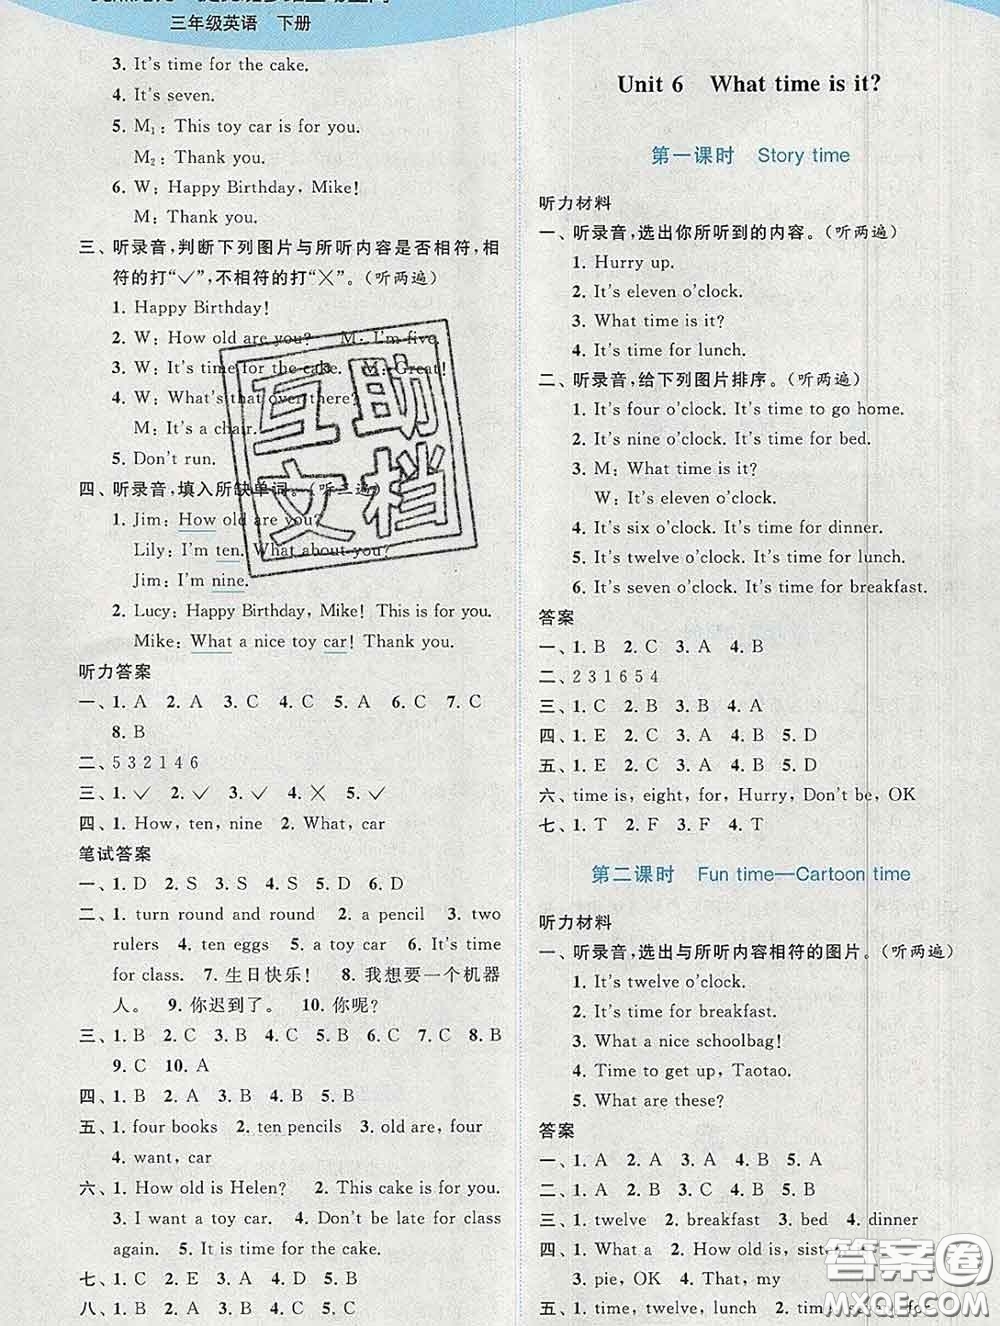 三年级英语 下册
3. It's time for the cake.
4. It's seven.
5. M₁: This toy car is for you.
M₂: Thank you.
6. W: Happy Birthday, Mike!
M: Thank you.
三、听录音,判断下列图片与所听内容是否相符,相
符的打“✓”,不相符的打“✗”。(听两遍)
1. Happy Birthday!
2. W: How old are you? M: I'm five.
3. W: It's time for the cake. M: Great!
4. W: What's that over there?
M: It's a chair.
5. Don't run.
四、听录音,填入所缺单词。(听三遍)
1. Jim: How old are you?
Lily: I'm ten. What about you?
Jim: I'm nine.
2. Lucy: Happy Birthday, Mike! This is for you.
Mike: What a nice toy car! Thank you.
听力答案
一、1. A 2. A 3. C 4. C 5. A 6. C 7. C
8. B
二、5 3 2 1 4 6
三、1. ✓ 2. ✓ 3. ✓ 4. ✗ 5. ✓
四、1. How, ten, nine 2. What, car
笔试答案
一、1. D 2. S 3. S 4. D 5. D
二、1. turn round and round 2. a pencil 3. two
rulers 4. ten eggs 5. a toy car 6. It's time
for class. 7. 生日快乐! 8. 我想要一个机器
人。 9. 你迟到了。 10. 你呢?
三、1. B 2. C 3. A 4. B 5. A 6. C 7. C 8. B
9. C 10. A
四、1. B 2. A 3. A 4. B 5. B
五、1. four books 2. ten pencils 3. old are, four
4. want, car
六、1. How old is Helen? 2. This cake is for you.
3. I want a toy car. 4. Don't be late for class
again. 5. It is time for the cake.
七、1. C 2. E 3. A 4. D 5. B
八、1. B 2. A 3. B 4. C 5. C
Unit 6 What time is it?
第一课时 Story time
听力材料
一、听录音,选出你所听到的内容。(听两遍)
1. Hurry up.
2. It's eleven o'clock.
3. What time is it?
4. It's time for lunch.
二、听录音,给下列图片排序。(听两遍)
1. It's four o'clock. It's time to go home.
2. It's nine o'clock. It's time for bed.
3. M: What time is it?
W: It's eleven o'clock.
4. It's six o'clock. It's time for dinner.
5. It's twelve o'clock. It's time for lunch.
6. It's seven o'clock. It's time for breakfast.
答案
一、1. B 2. C 3. A 4. B
二、2 3 1 6 5 4
三、1. C 2. B 3. B 4. A
四、1. E 2. C 3. A 4. B 5. D
五、1. E 2. C 3. A 4. B 5. D
六、time is, eight, for, Hurry, Don't be, OK
七、1. T 2. F 3. F 4. T
第二课时 Fun time—Cartoon time
听力材料
一、听录音,选出与所听内容相符的图片。(听两遍)
1. It's twelve o'clock.
2. It's time for breakfast.
3. What a nice schoolbag!
4. Time to get up, Taotao.
5. What are these?
答案
一、1. A 2. A 3. B 4. A 5. A
二、1. A 2. B 3. B 4. A 5. B
三、1. twelve 2. breakfast 3. bed 4. dinner
四、1. What a 2. How old is,
3. pie, OK 4. That, my
五、1. time, twelve, lunch 2. for
互助
文档
答案圈
MXQE.COM